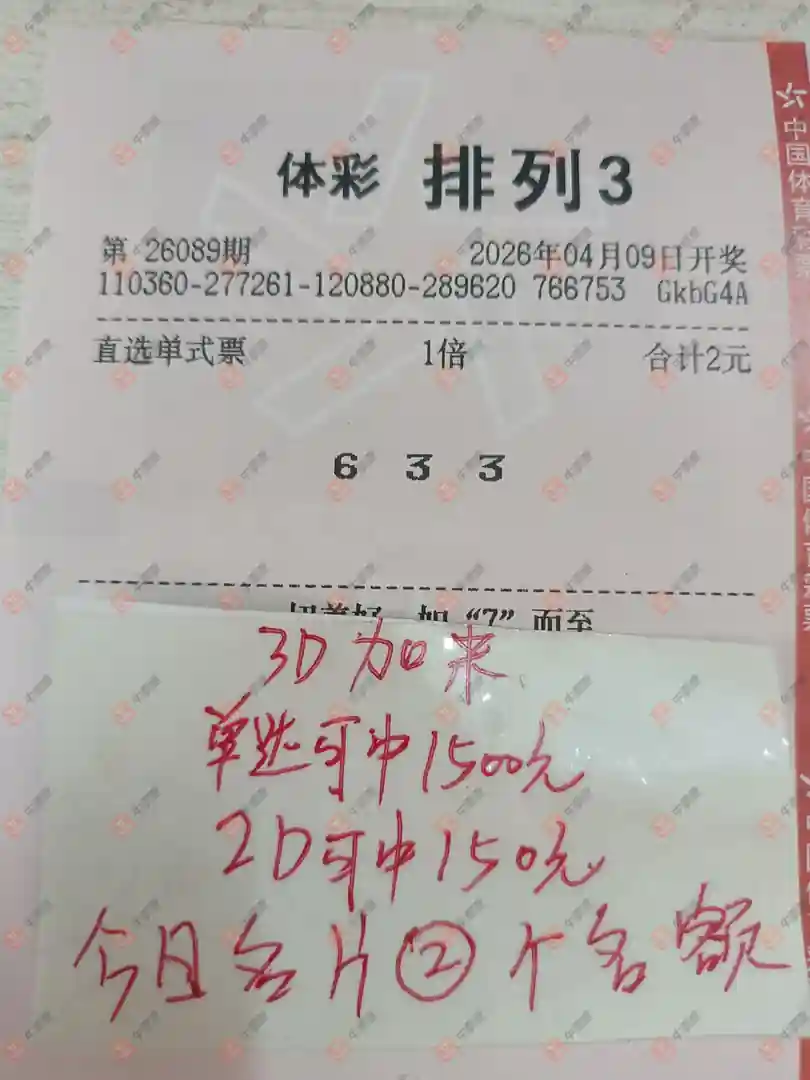 体彩 排列3
第 26089期 2026年04月09日开奖
110360-277261-120880-289620 766753 GkbG4A
直选单式票 1倍 合计2元
6 3 3
如“7”而至
3D加来
单选可中1500元
2D可中150元
今日名片②个名额
中国体育彩票
中国体育彩票